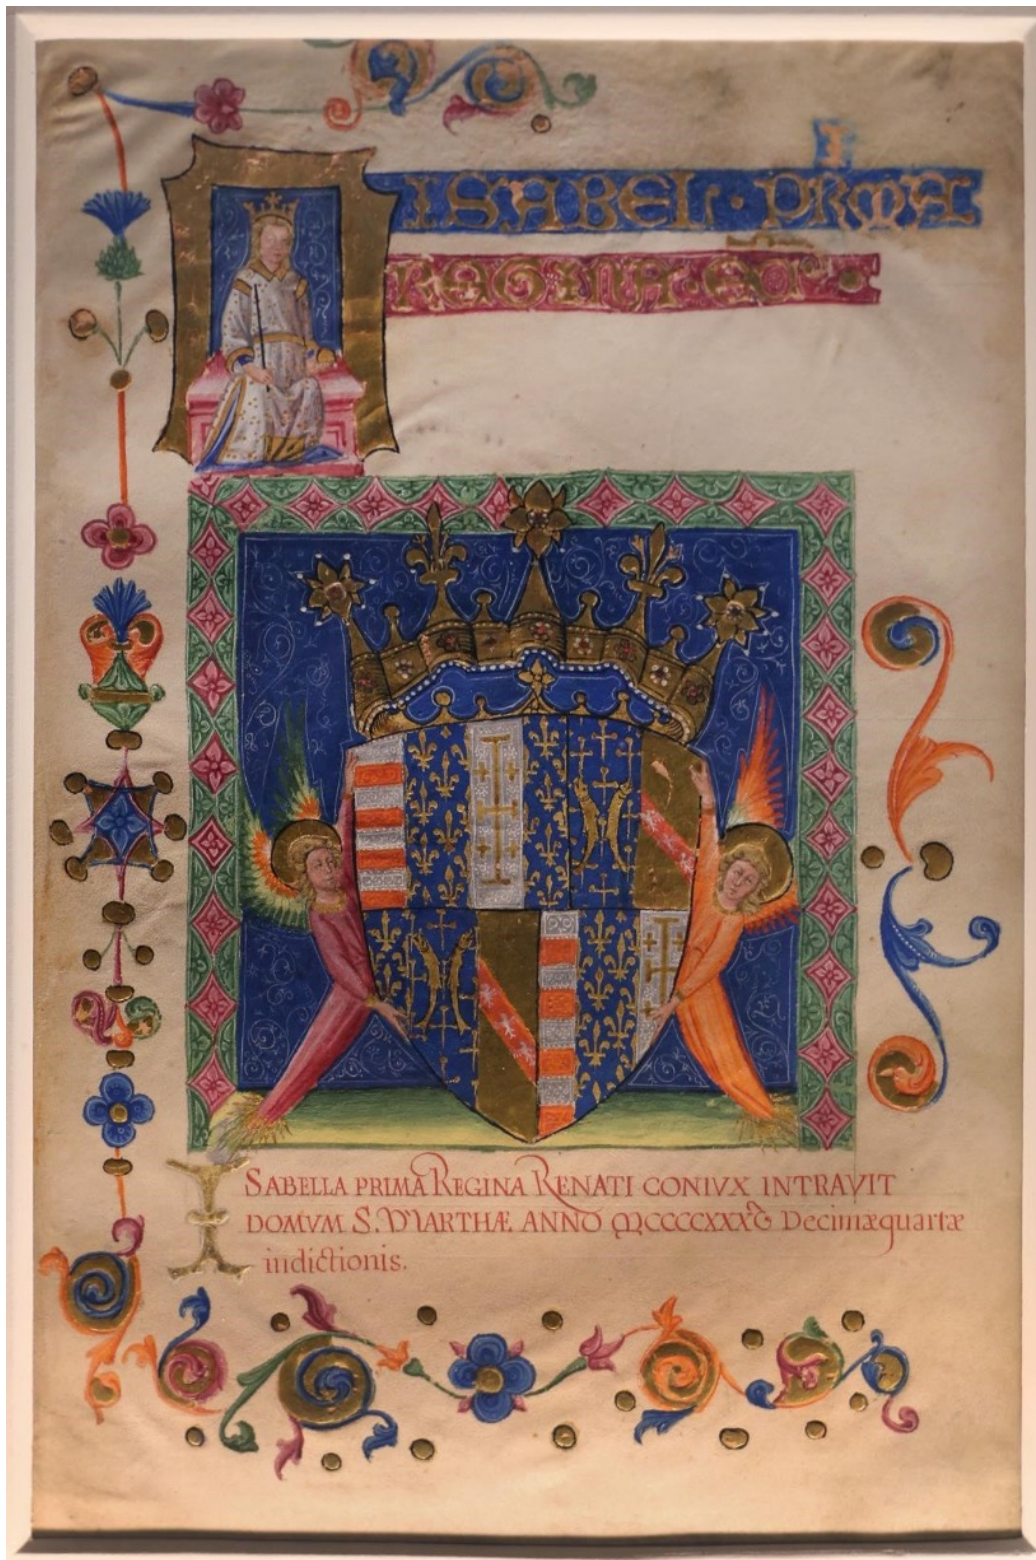 ISABEL · PRIMA
REGINA
ISABELLA PRIMA REGINA RENATI CONIVX INTRAVIT
DOMVM S. MARTHÆ ANNO Decimæquartæ
indictionis.